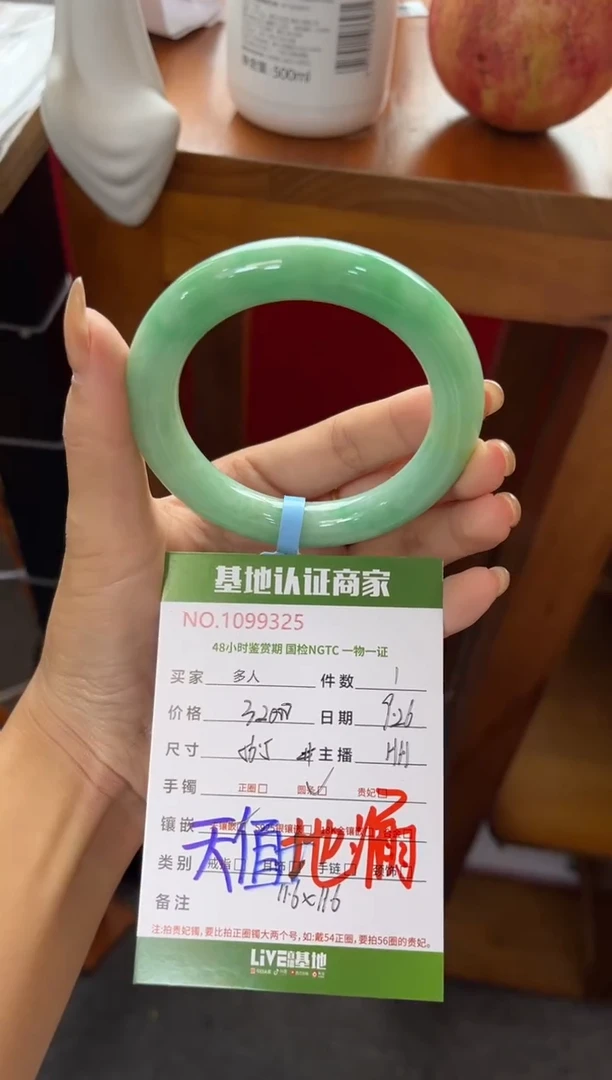 500ml
基地认证商家
NO.1099325
48小时鉴赏期 国检NGTC 一物一证
买家 多人 件数 1
价格 日期 9.26
尺寸 主播 HH
手镯 正圈□ 圆条□ 贵妃□
镶嵌
类别 戒指□ 手链□
天值地
备注 11.6×11.6
注:拍贵妃镯,要比拍正圈镯大两个号,如:戴54正圈,要拍56圈的贵妃。
LiVE 基地